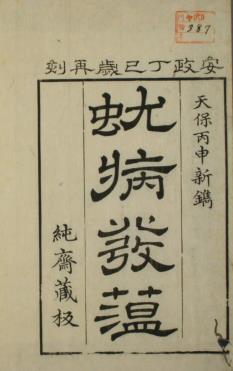 安政丁巳歳再刻
天保丙申新鐫
蚘病發蘊
純齋藏板
387